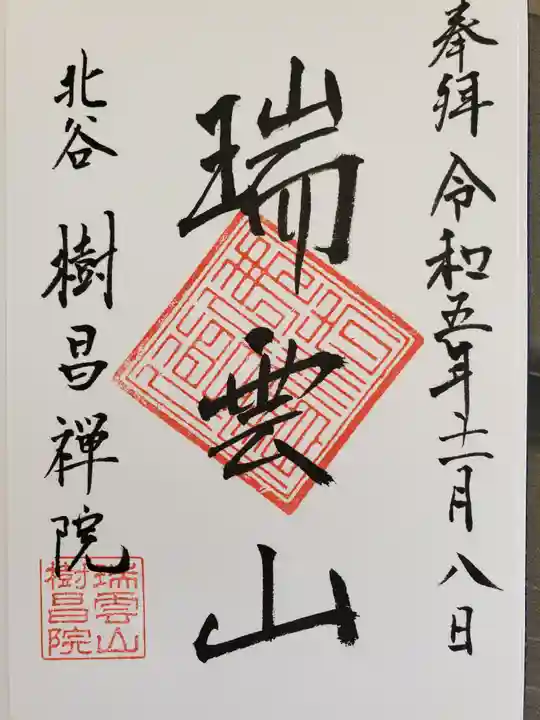 奉拝 令和五年十二月八日
瑞雲山
北谷 樹昌禅院
瑞雲山
樹昌院